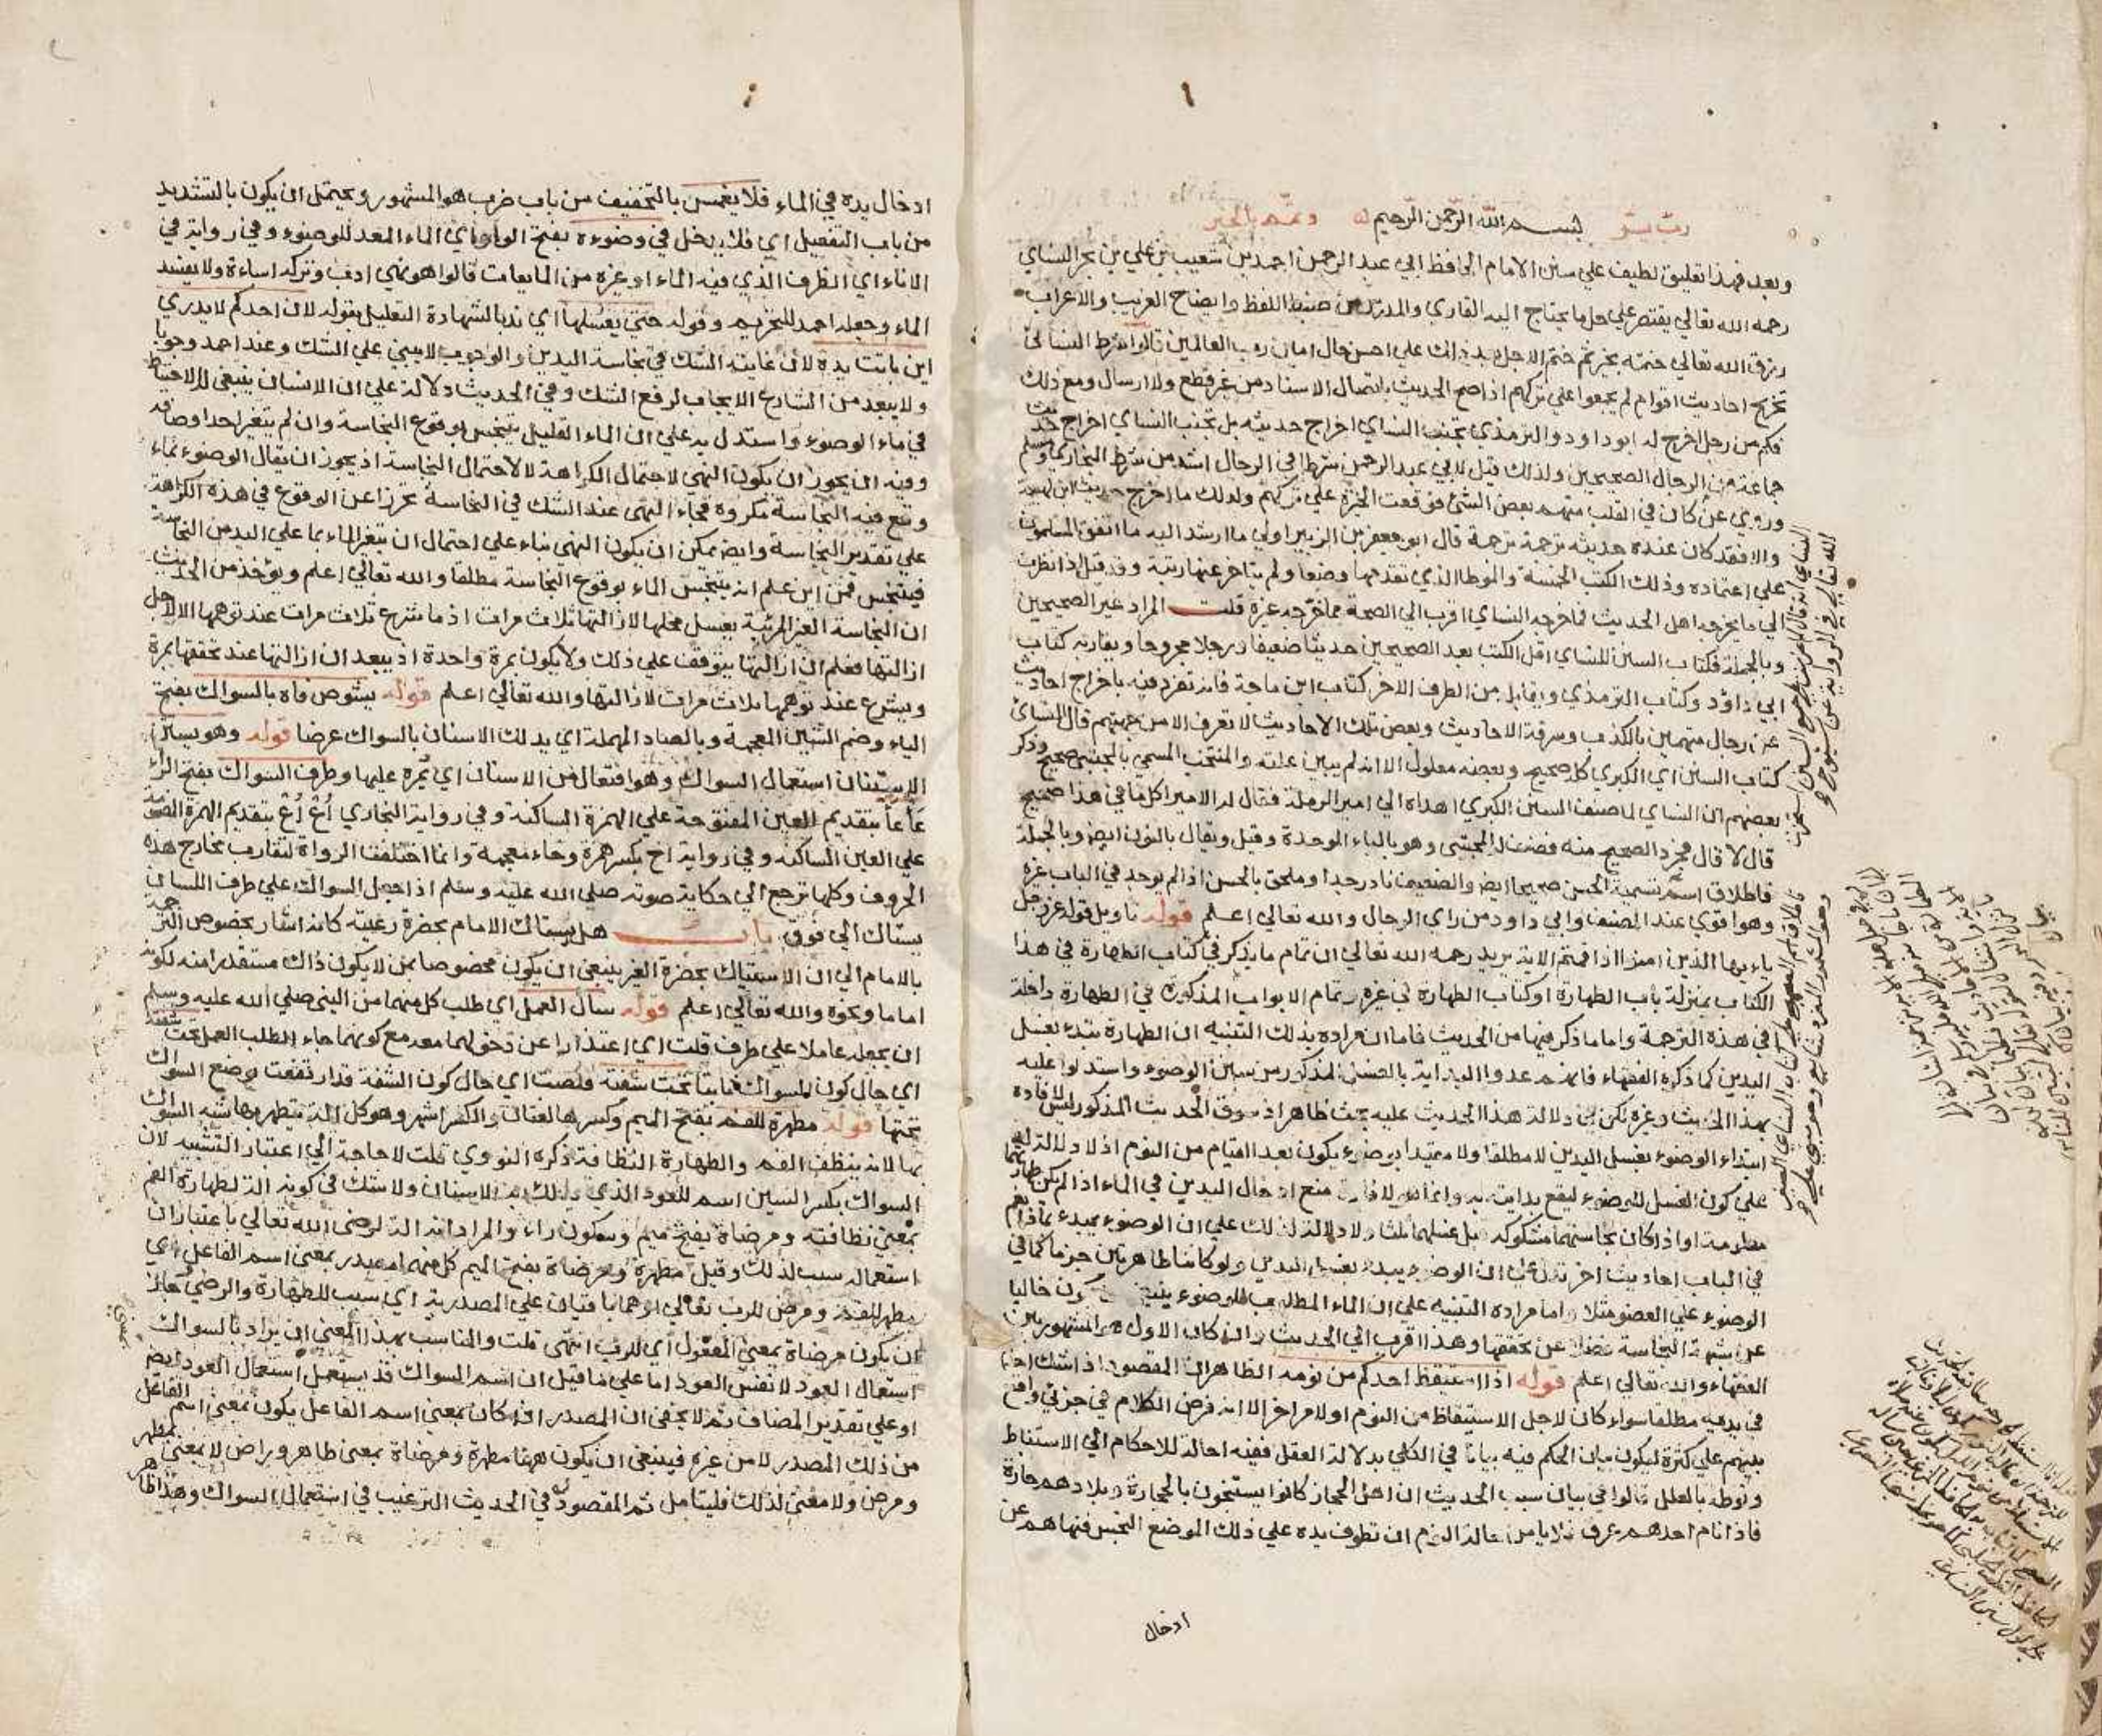 رب يسر بسم الله الرحمن الرحيم وتمم بالخير
وبعد فهذا تعليق لطيف علي سنن الامام الحافظ ابي عبد الرحمن احمد بن شعيب بن علي بن بحر النساي
رحمه الله تعالي يقتصر علي حل ما يحتاج اليه القاري والمدرس من ضبط اللفظ وايضاح الغريب والاعراب
رزق الله تعالي ختمه بخير ثم ختم الاجل بعد ذلك علي احسن حال امين رب العالمين قالوا شرط النسائ
تخريج احاديث اقوام لم يجمعوا علي تركهم اذا صح الحديث باتصال الاسناد من غير قطع ولا ارسال ومع ذلك
فكم من رجل اخرج له ابو داود والترمذي تجنب النساي اخراج حديثه بل تجنب النساي اخراج حديث
جماعة من الرجال الصحيحين ولذلك قيل لابي عبد الرحمن شرط في الرجال اشد من شرط البخاري ومسلم
وروي عن كان في القلب منهم بعض الشئ فوقعت الخيرة علي تركهم ولذلك ما اخرج حديث ابن لهيعة
والا فقد كان عنده حديثه ترجمة ترجمة قال ابو جعفر بن الزبير اولي ما ارشد اليه ما اتفق المسلمون
علي اعتماده وذلك الكتب الخمسة والموطا الذي تقدمها وضعا ولم يتاخر عنها رتبة وقد قيل اذا نظرت
الي ما يخرجه اهل الحديث فما خرجه النساي اقرب الي الصحة مما خرجه غيره قلت المراد غير الصحيحين
وبالجملة فكتاب السنن للنساي اقل الكتب بعد الصحيحين حديثا ضعيفا ورجلا مجروحا ويقاربه كتاب
ابي داؤد وكتاب الترمذي ويقابله من الطرف الاخر كتاب ابن ماجة فانه تفرد فيه باخراج احاديث
عن رجال متهمين بالكذب وسرقة الاحاديث وبعض تلك الاحاديث لا تعرف الا من جهتهم قال النسائ
كتاب السنن اي الكبري كله صحيح وبعضه معلول الا انه لم يبين علته والمنتخب المسمي بالمجتبي صحيح وذكر
بعضهم ان النساي لما صنف السنن الكبري اهداه الي امير الرملة فقال له الامير اكل ما في هذا صحيح
قال لا قال فجرد الصحيح منه فصنف له المجتبي وهو بالباء الموحدة وقيل ويقال بالنون ايضا وبالجملة
فاطلاق اسم تسمية الحسن صحيحا ايضا والضعيف نادر جدا وملحق بالحسن اذا لم يوجد في الباب غيره
وهو اقوي عند المصنف وابي داود من راي الرجال والله تعالي اعلم قوله تاويل قوله عز وجل
يا ايها الذين امنوا اذا قمتم الاية يريد رحمه الله تعالي ان تمام ما يذكر في كتاب الطهارة في هذا
الكتاب بمنزلة باب الطهارة او كتاب الطهارة في غيره وتمام الابواب المذكورة في الطهارة داخلة
في هذه الترجمة واما ما ذكر فيها من الحديث فاما ان مراده بذلك التنبيه ان الطهارة تبتدء بغسل
اليدين كما ذكره الفقهاء فانهم عدوا البداية بالغسل المذكور من سنن الوضوء واستدلوا عليه
بهذا الحديث وغيره لكن في دلالة هذا الحديث عليه بحث ظاهر اذ سوق الحديث المذكور ليس لافادة
ابتداء الوضوء بغسل اليدين لا مطلقا ولا مقيدا بوضوء يكون بعد القيام من النوم اذ لا دلالة له
علي كون الغسل للوضوء ليقع بدايته به وانما لافادة منع ادخال اليدين في الماء اذا لم يكن طهارتهما
معلومة او اذا كان نجاستهما مشكوكة قبل غسلهما ثلثا ولا دلالة لذلك علي ان الوضوء يبدء بماذا نعم
في الباب احاديث اخر تدل علي ان الوضوء يبدء بغسل اليدين ولو كانتا طاهرتين جزما كما في
الوضوء علي الوضوء مثلا واما مراده التنبيه علي ان الماء المطلوب للوضوء ينبغي كون خاليا
عن شبهة النجاسة فضلا عن تحققها وهذا اقرب الي الحديث وان كان الاول هو المشهور بين
الفقهاء والله تعالي اعلم قوله اذا استيقظ احدكم من نومه الظاهر ان المقصود اذا شك احدكم
في يديه مطلقا سواء كان لاجل الاستيقاظ من النوم او لامر اخر الا انه فرض الكلام في جزئي واقع
بينهم علي كثرة ليكون بيان الحكم فيه بيانا في الكلي بدلالة العقل ففيه احالة للاحكام الي الاستنباط
ونوطه بالعلل قالوا في بيان سبب الحديث ان اهل الحجاز كانوا يستنجون بالحجارة وبلادهم حارة
فاذا نام احدهم عرف فلا يامن حالة النوم ان تطوف يده علي ذلك الموضع النجس فنهاهم عن
ادخال
ادخال يده في الماء فلا يغمس بالتخفيف من باب ضرب هو المشهور ويحتمل ان يكون بالتشديد
من باب التفعيل اي فلا يدخل في وضوءه بفتح الواو اي الماء المعد للوضوء وفي رواية في
الاناء اي الظرف الذي فيه الماء او غيره من المايعات قالوا هو نهي ادب وتركه اساءة ولا يفسد
الماء وجعله احمد للتحريم وقوله حتي يغسلها اي ندبا لشهادة التعليل بقوله لان احدكم لا يدري
اين باتت يده لان غايته الشك في نجاسة اليدين والوجوب لا يبني علي الشك وعند احمد وجوبا
ولا يبعد من الشارع الايجاب لرفع الشك وفي الحديث دلالة علي ان الانسان ينبغي له الاحتياط
في ماء الوضوء واستدل به علي ان الماء القليل يتنجس بوقوع النجاسة وان لم يتغير احد اوصافه
وفيه انه يجوز ان يكون النهي لاحتمال الكراهة لا لاحتمال النجاسة اذ يجوز ان يقال الوضوء بماء
وقع فيه النجاسة مكروه فجاء النهي عند الشك في النجاسة تحرزا عن الوقوع في هذه الكراهة
علي تقدير النجاسة وايضا يمكن ان يكون النهي بناء علي احتمال ان يتغير الماء بما علي اليد من النجاسة
فيتنجس فمن اين علم انه يتنجس الماء بوقوع النجاسة مطلقا والله تعالي اعلم ويؤخذ من الحديث
ان النجاسة الغير المرئية يغسل محلها لازالتها ثلاث مرات اذ ما شرع ثلاث مرات عند توهمها الا لاجل
ازالتها فعلم ان ازالتها يتوقف علي ذلك ولا يكون بمرة واحدة اذ يبعد ان ازالتها عند تحققها بمرة
ويشرع عند توهمها ثلاث مرات لازالتها والله تعالي اعلم قوله يشوص فاه بالسواك بفتح
الياء وضم الشين المعجمة وبالصاد المهملة اي يدلك الاسنان بالسواك عرضا قوله وهو يستن
الاستنان استعمال السواك وهو افتعال من الاسنان اي يمره عليها وطرف السواك بفتح الراء
عَأعَأ بتقديم العين المفتوحة علي الهمزة الساكنة وفي رواية البخاري اُع اُع بتقديم الهمزة المضمومة
علي العين الساكنة وفي رواية اخ بكسر همزة وخاء معجمة وانما اختلفت الرواة لتقارب مخارج هذه
الحروف وكلها ترجع الي حكاية صوته صلي الله عليه وسلم اذا جعل السواك علي طرف اللسان
يستاك الي فوق باب هل يستاك الامام بحضرة رعيته كانه اشار بخصوص الترجمة
بالامام الي ان الاستياك بحضرة الغير ينبغي ان يكون مخصوصا بمن لا يكون ذاك مستقذرا منه لكونه
اماما ونحوه والله تعالي اعلم قوله سأل العمل اي طلب كل منهما من النبي صلي الله عليه وسلم
ان يجعله عاملا علي طرف قلت اي اعتذارا عن دخولهما معه مع كونهما جاء الطلب العمل تحت شفته
اي حال كون السواك ثابتا تحت شفته قلصت اي حال كون الشفة قد ارتفعت بوضع السواك
تحتها قوله مطهرة للفم بفتح الميم وكسرها لغتان والكسر اشهر وهو كل الة يتطهر بها شبه السواك
بها لانه ينظف الفم والطهارة النظافة ذكره النووي قلت لا حاجة الي اعتبار التشبيه لان
السواك بكسر السين اسم للعود الذي يدلك به الاسنان ولا شك في كونه الة لطهارة الفم
بمعني نظافته ومرضاة بفتح ميم وسكون راء والمراد انه الة لرضي الله تعالي باعتبار ان
استعماله سبب لذلك وقيل مطهرة ومرضاة بفتح الميم كل منهما مصدر بمعني اسم الفاعل اي
مطهر للفم ومرض للرب تعالي او هما باقيان علي المصدرية اي سبب للطهارة والرضي وجاز
ان يكون مرضاة بمعني المفعول اي للرب انتهي قلت والمناسب بهذا المعني ان يراد بالسواك
استعمال العود لا نفس العود اما علي ما قيل ان اسم السواك قد يستعمل استعمال العود ايضا
او علي تقدير المضاف ثم لا يخفي ان المصدر اذا كان بمعني اسم الفاعل يكون بمعني اسم الفاعل
من ذلك المصدر لا من غيره فينبغي ان يكون ههنا مطهرة ومرضاة بمعني طاهر وراض لا بمعني مطهر
ومرض ولا معني لذلك فليتامل ثم المقصود في الحديث الترغيب في استعمال السواك وهذا ظاهر